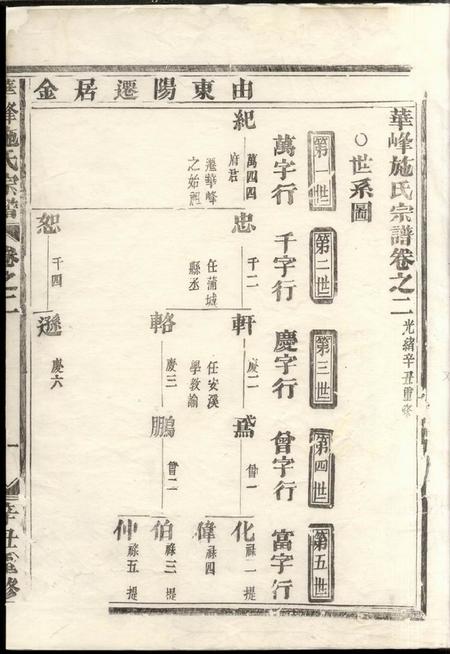 華峰施氏宗譜卷之二 光緒辛丑重修
○世系圖
第一世
第二世
第三世
第四世
第五世
萬字行
千字行
慶字行
曾字行
富字行
由東陽遷居金
紀
萬四四
府君
遷華峰
之始祖
忠
千二
任蒲城
縣丞
恕
千四
軒
慶二
任安溪
學教諭
輅
慶三
遜
慶六
曾一
鵬
曾二
化
祿一 提
偉
祿四
伯
祿三 提
仲
祿五 提
華峰施氏宗譜
卷之二
一
辛丑重修